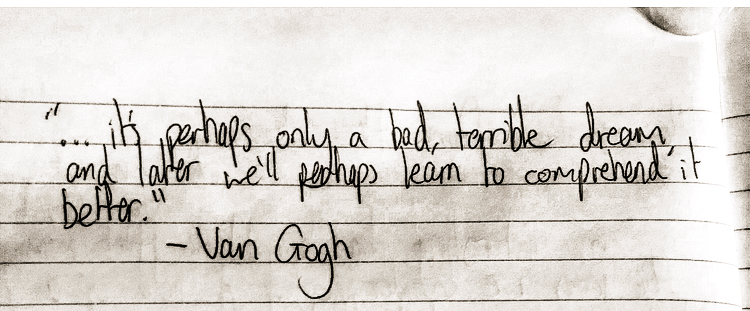 "... it's perhaps only a bad, terrible dream,
and later we'll perhaps learn to comprehend it
better."
- Van Gogh